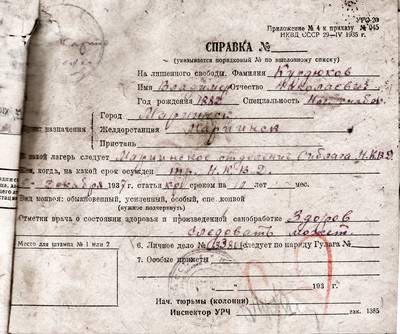 УРО-20
Приложение № 4 к приказу № 045
НКВД СССР 29—IV 1935 г.
СПРАВКА №
(указывается порядковый № по именному списку)
На лишенного свободы. Фамилия Курдюков
Имя Владимир Отчество Николаевич
Год рождения 1882 Специальность
Город Мариинск
назначения Желдорстанция Мариинск
Пристань
В какой лагерь следует Мариинское отделение Сиблага НКВД
когда, на какой срок осужден тр. НКВД
декабря 1937 статья крд сроком на 10 лет мес.
Вид конвоя: обыкновенный, усиленный, особый, спе. конвой
(нужное подчеркнуть)
Отметки врача о состоянии здоровья и произведенной санобработке Здоров
следовать может.
Место для штампа № 1 или 2
6. Личное дело № следует по наряду Гулага №
7. Особые приметы
193 г.
Нач. тюрьмы (колонии)
Инспектор УРЧ
зак. 1385